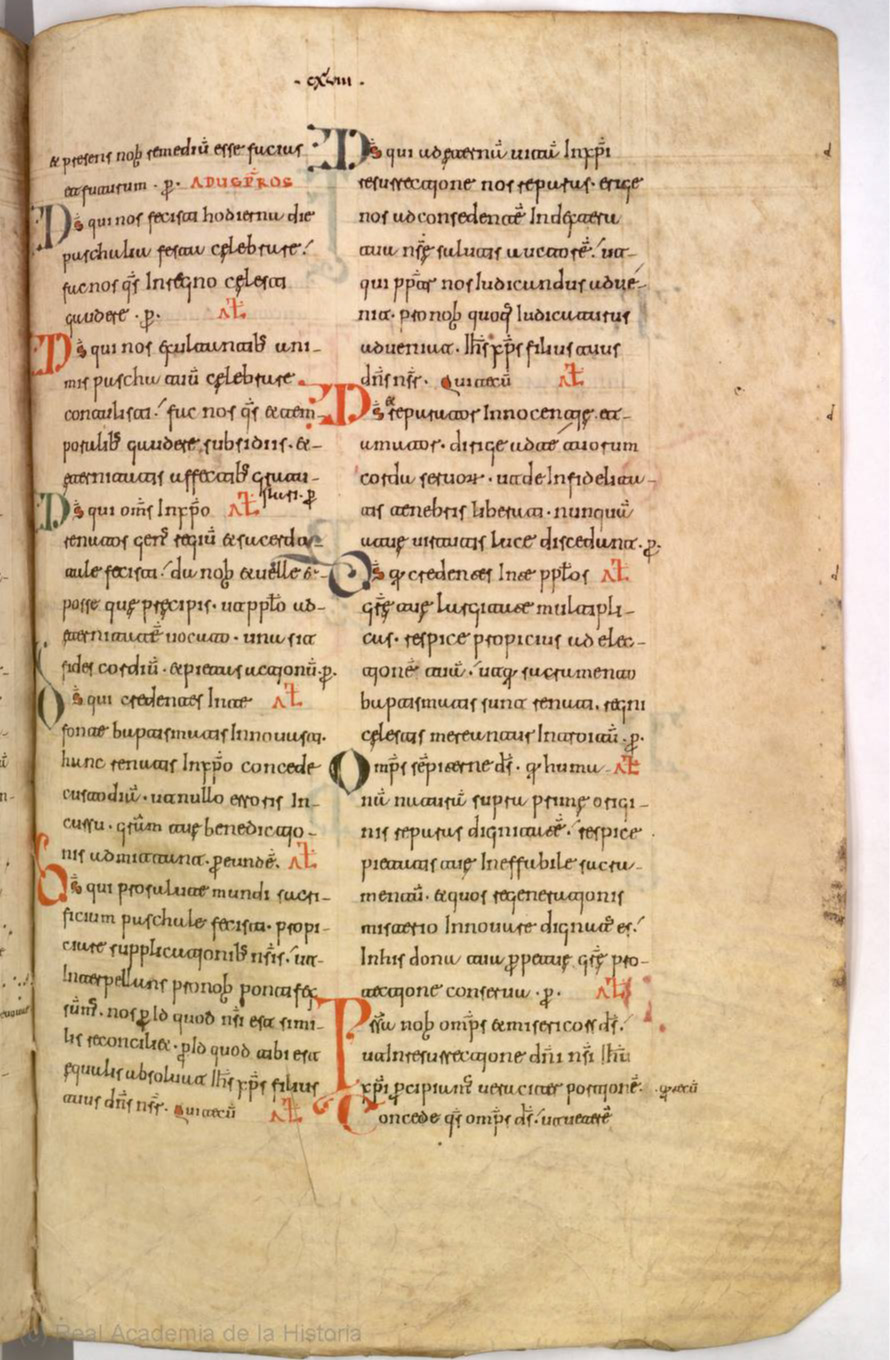 · cxluiii ·
& presens nob remediū esse facias
et futurum · p̄· AD UESPEROS
Ds̄ qui nos fecisti hodierna die
paschalia festa cęlebrare.
fac nos qs̄ In regno cęlesti
gaudere · p̄· ALt̄
Ds̄ qui nos exultantib; ani-
mis pascha tuū cęlebrare
tribuisti. fac nos qs̄ & tem-
poralib; gaudere subsidiis · &-
ęternitatis effectib; gratu-
lari· p̄
Ds̄ qui om̄s In xp̄o ALt̄
renatos gen; regiū & sacerdo-
tale fecisti. da nob & uelle &-
posse quę pręcipis· ut pplo ad-
ęternitatē uocato · una sit
fides cordiū · & pietas actionū·p̄·
Ds̄ qui credentes In te ALt̄
fonte baptismatis Innouasti·
hanc renatis In xp̄o concede
custodiā · ut nullo erroris In-
cursu · grām tuę benedictio-
nis admittant· p̄ eundē· ALt̄
Ds̄ qui pro salute mundi sacri-
ficium paschale fecisti· propi-
ciare supplicationib; nr̄is. ut-
Interpellans pro nob pontifex
sum̄; nos p̄ Id quod nr̄i est simi-
lis reconciliet· p̄ Id quod tibi est
ęqualis absoluat Ihs̄ xp̄s filius
tuus dn̄s nr̄s· Qui tecū ALt̄
Ds̄ qui ad ęternā uitā In xp̄i
resurrectione nos reparas· erige
nos ad consedentē In dextera
tua nr̄ę salutis auctorē. ut-
qui pp̄ter nos Iudicandus adue-
nit· pro nob quoq; Iudicaturus
adueniat· Ihs̄ xp̄s filius tuus
dn̄s nr̄s· Qui tecū ALt̄
Ds̄ reparator Innocentię & et
amator· dirige ad te tuorum
corda seruor· ut de Infidelita-
tis tenebris liberati· nunquā
a tuę uirtutis luce discedant·p̄·
Ds̄ q; credentes In te pplos ALt̄
gr̄ę tuę largitate multipli-
cas· respice propicius ad elec-
tionē tuā. ut q; sacramento
baptismatis sunt renati, regni
cęlestis mereantur Introitū· p̄·
Omps̄ semp̄iterne ds̄· q; huma- ALt̄
nā naturā supra primę origi-
nis reparas dignitatē. respice
pietatis tuę Ineffabile sacra-
mentū· & quos regenerationis
misterio Innouare dignatꝰ es.
In his dona tua p̄petuę gr̄ę pro-
tectione conserua· p̄· ALt̄
Pr̄sta nob omps̄ & misericors ds̄.
ut In resurrectione dn̄i nr̄i Ihū
xp̄i p̄cipiam; ueraciter portionē· · q; tecū
Concede qs̄ omps̄ ds̄. ut ueterē